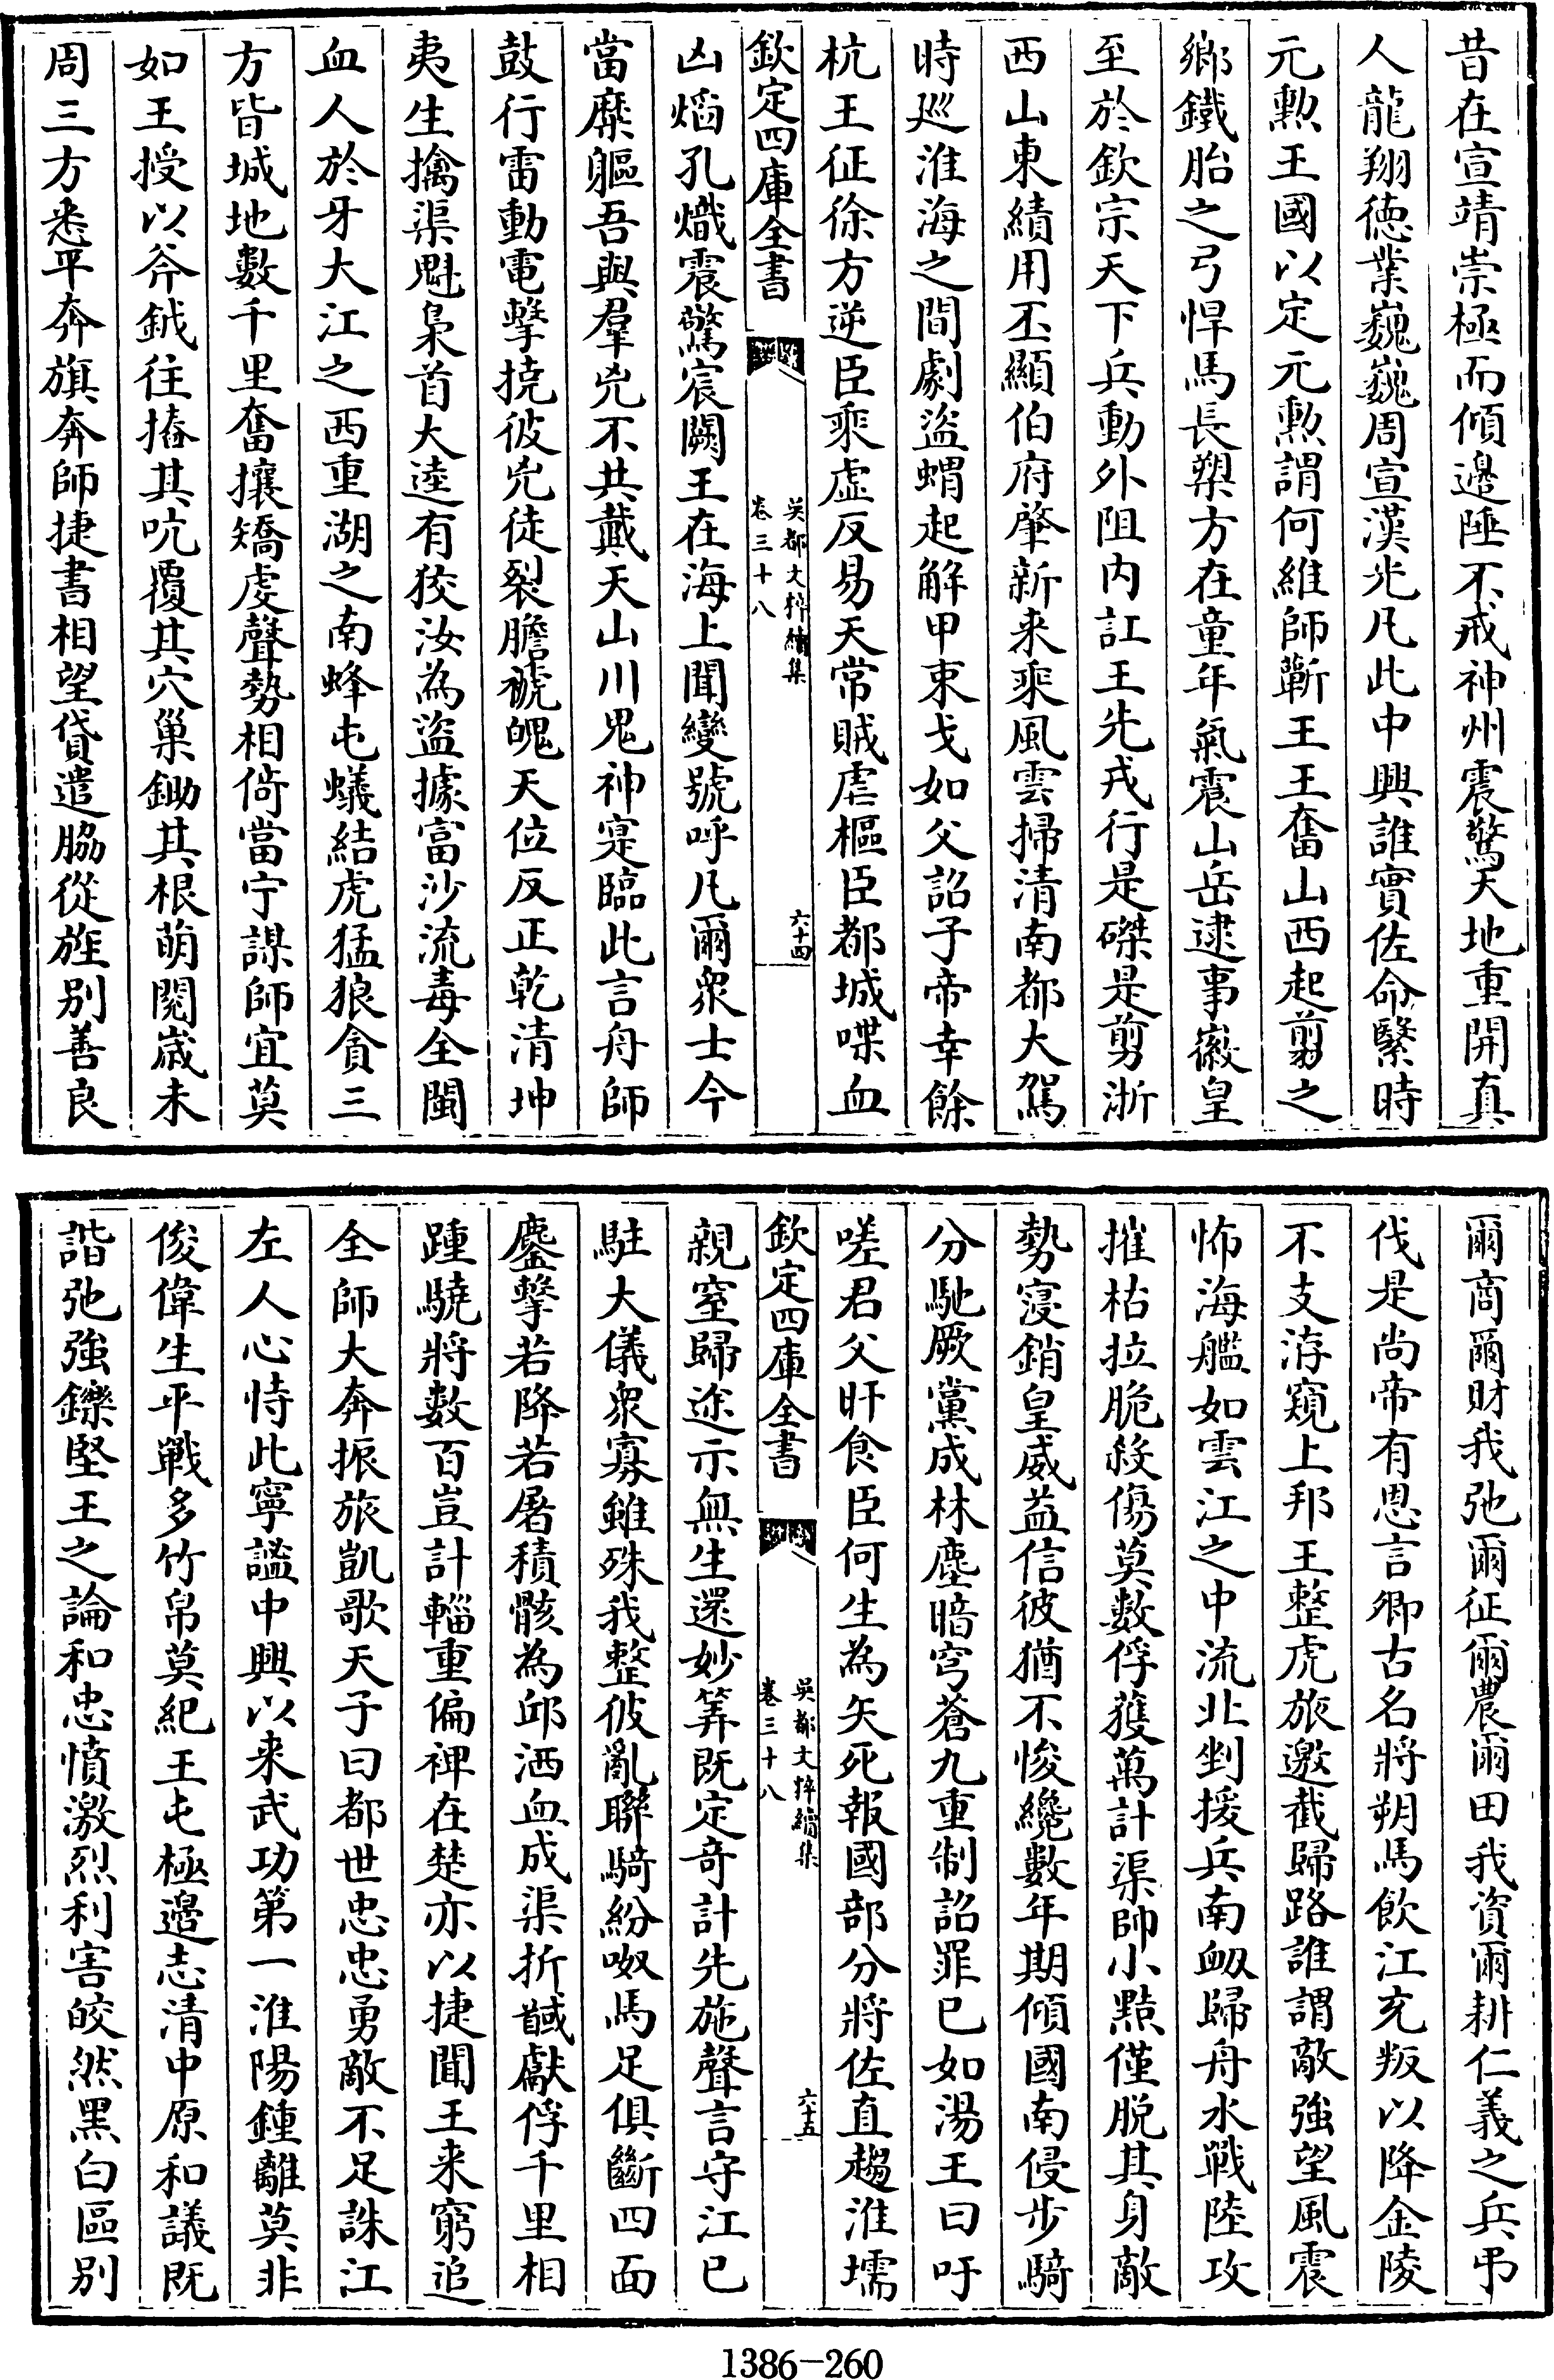 昔在宣靖崇極而傾邉陲不戒神州震驚天地重開真
人龍翔徳業巍巍周宣漢光凡此中興誰實佐命緊時
元勲王國以定元勲謂何維師蘄王王奮山西起翦之
鄉鐵胎之弓悍馬長槊方在童年氣震山岳逮事徽皇
至於欽宗天下兵動外阻内訌王先戎行是磔是剪浙
西山東績用丕顯伯府肇新来乘風雲掃清南都大駕
時廵淮海之間劇盜蝟起解甲東戈如父詔子帝幸餘
杭王征徐方逆臣乘虚反易天常賊虐樞臣都城喋血
欽定四庫全書
吳都文粹續集
卷三十八
六十四
凶熖孔熾震驚宸闕王在海上聞變號呼凡爾衆士今
當糜軀吾與羣兇不共戴天山川鬼神寔臨此言舟師
鼓行雷動電擊撓彼兇徒裂膽褫魄天位反正乾清坤
夷生擒渠魁梟首大逵有狡汝為盜據富沙流毒全閩
血人於牙大江之西重湖之南蜂屯蟻結虎猛狼貪三
方皆城地數千里奮攘矯虔聲勢相倚當宁謀師宜莫
如王授以斧鉞往摏其吭覆其穴巢鋤其根萌閱嵗未
周三方悉平奔旗奔師捷書相望貸遣脇從旌别善良
爾商爾財我弛爾征爾農爾田我資爾耕仁義之兵弔
伐是尚帝有恩言卿古名將朔馬飲江充叛以降金陵
不支洊窺上邦王整虎旅邀截歸路誰謂敵強望風震
怖海艦如雲江之中流北剉援兵南衂歸舟水戰陸攻
摧枯拉脆殺傷莫數俘獲萬計渠帥小黠僅脱其身敵
勢寖銷皇威益信彼猶不悛纔數年期傾國南侵步騎
分馳厥黨成林塵暗穹蒼九重制詔罪已如湯王曰吁
嗟君父旰食臣何生為矢死報國部分將佐直趨淮壖
欽定四庫全書
吳都文粹續集
卷三十八
六十五
親窒歸途示無生還妙筭既定奇計先施聲言守江已
駐大儀衆寡雖殊我整彼亂聯騎紛呶馬足俱斷四面
鏖擊若降若屠積骸為邱洒血成渠折馘獻俘千里相
踵驍將數百豈計輜重偏裨在楚亦以捷聞王来窮追
全師大奔振旅凱歌天子曰都世忠忠勇敵不足誅江
左人心恃此寧謐中興以来武功第一淮陽鍾離莫非
俊偉生平戰多竹帛莫紀王屯極邉志清中原和議既
諧弛強鑠堅王之論和忠憤激烈利害皎然黒白區别
1386-260